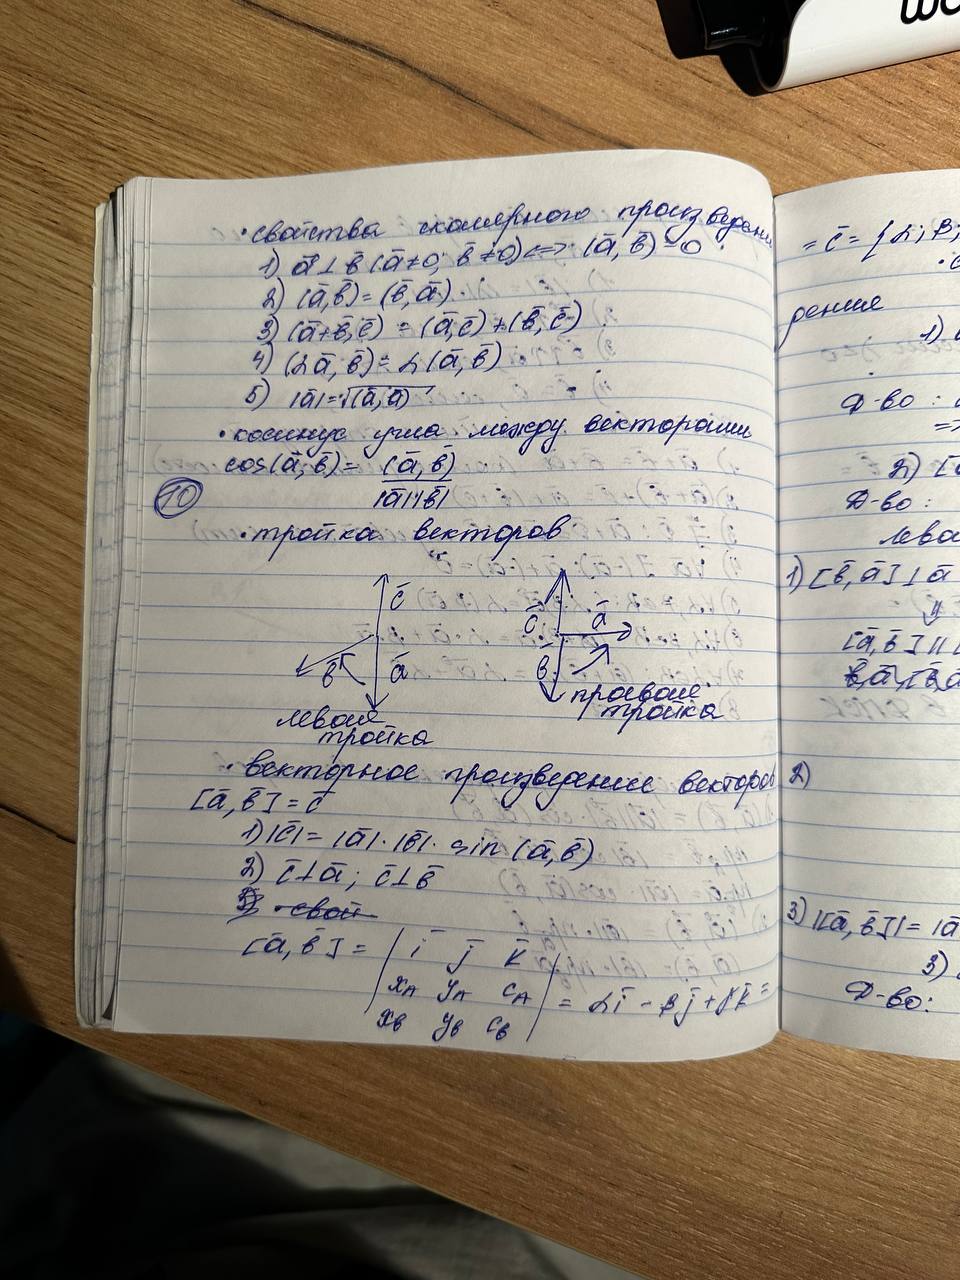 • свойства скалярного произведени
1) ā ⊥ b̄ (ā≠0; b̄≠0) <=> (ā, b̄) = 0
2) (ā, b̄) = (b̄, ā)
3) (ā+b̄, c̄) = (ā, c̄) + (b̄, c̄)
4) (αā, b̄) = α(ā, b̄)
5) |ā| = √(ā, ā)
• косинус угла между векторами
cos(ā; b̄) = (ā, b̄)
|ā||b̄|
10
• тройка векторов
c̄
b̄ ā
левая
тройка
c̄ ā
b̄
правая
тройка
• векторное произведение векторов
[ā, b̄] = c̄
1) |c̄| = |ā|·|b̄|· sin (ā, b̄)
2) c̄⊥ā; c̄⊥b̄
3) • свой
[ā, b̄] = | ī j̄ k̄
x_A y_A c_A | = αī - βj̄ + γk̄ =
x_B y_B c_B
= c̄ = {α; β;
рение
1)
Д-во :
=>
2) [ā
Д-во :
лева
1) [b̄, ā] ⊥ ā
[ā, b̄] ||
2)
3) |[ā, b̄]| = |ā
3)
Д-во: